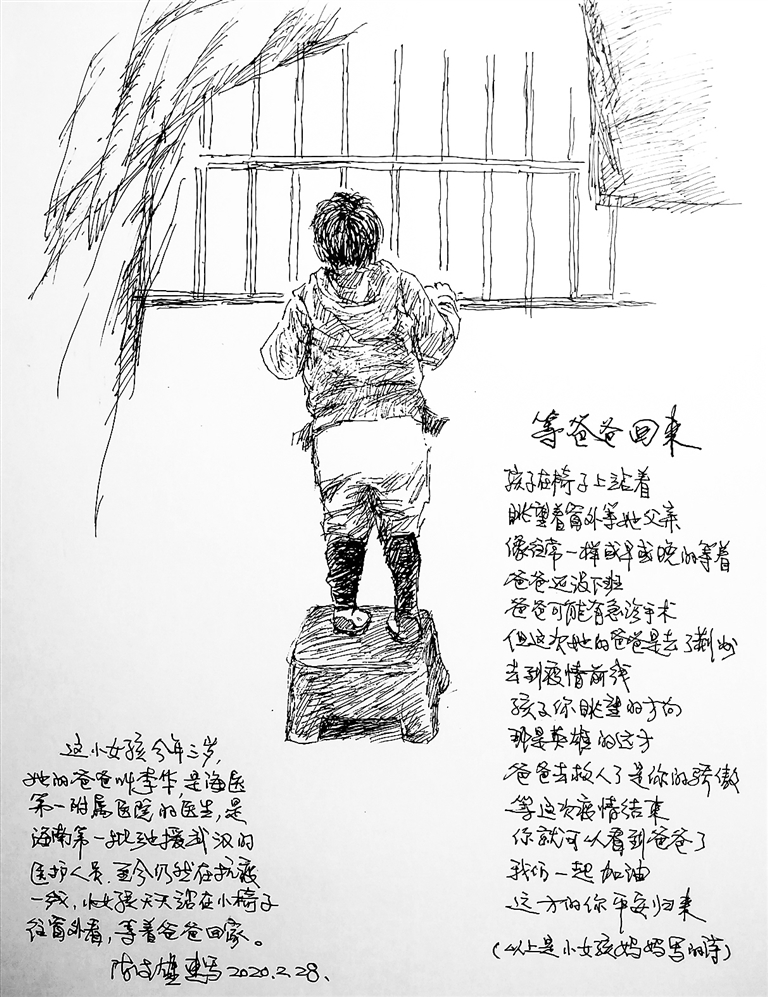 等爸爸回来
孩子在椅子上站着
眺望着窗外等她父亲
像往常一样或早或晚的等着
爸爸还没下班
爸爸可能有急诊手术
但这次她的爸爸是去了荆州
去到疫情前线
孩子你眺望的方向
那是英雄的远方
爸爸去救人了是你的骄傲
等这次疫情结束
你就可以看到爸爸了
我们一起加油
远方的你平安归来
(以上是小女孩妈妈写的诗)
这小女孩今年三岁,
她的爸爸叫李华,是海医
第一附属医院的医生,是
海南第一批驰援武汉的
医护人员.至今仍然在抗疫
一线,小女孩天天站在小椅子
往窗外看,等着爸爸回家。
陈 雄 速写2020.2.28.